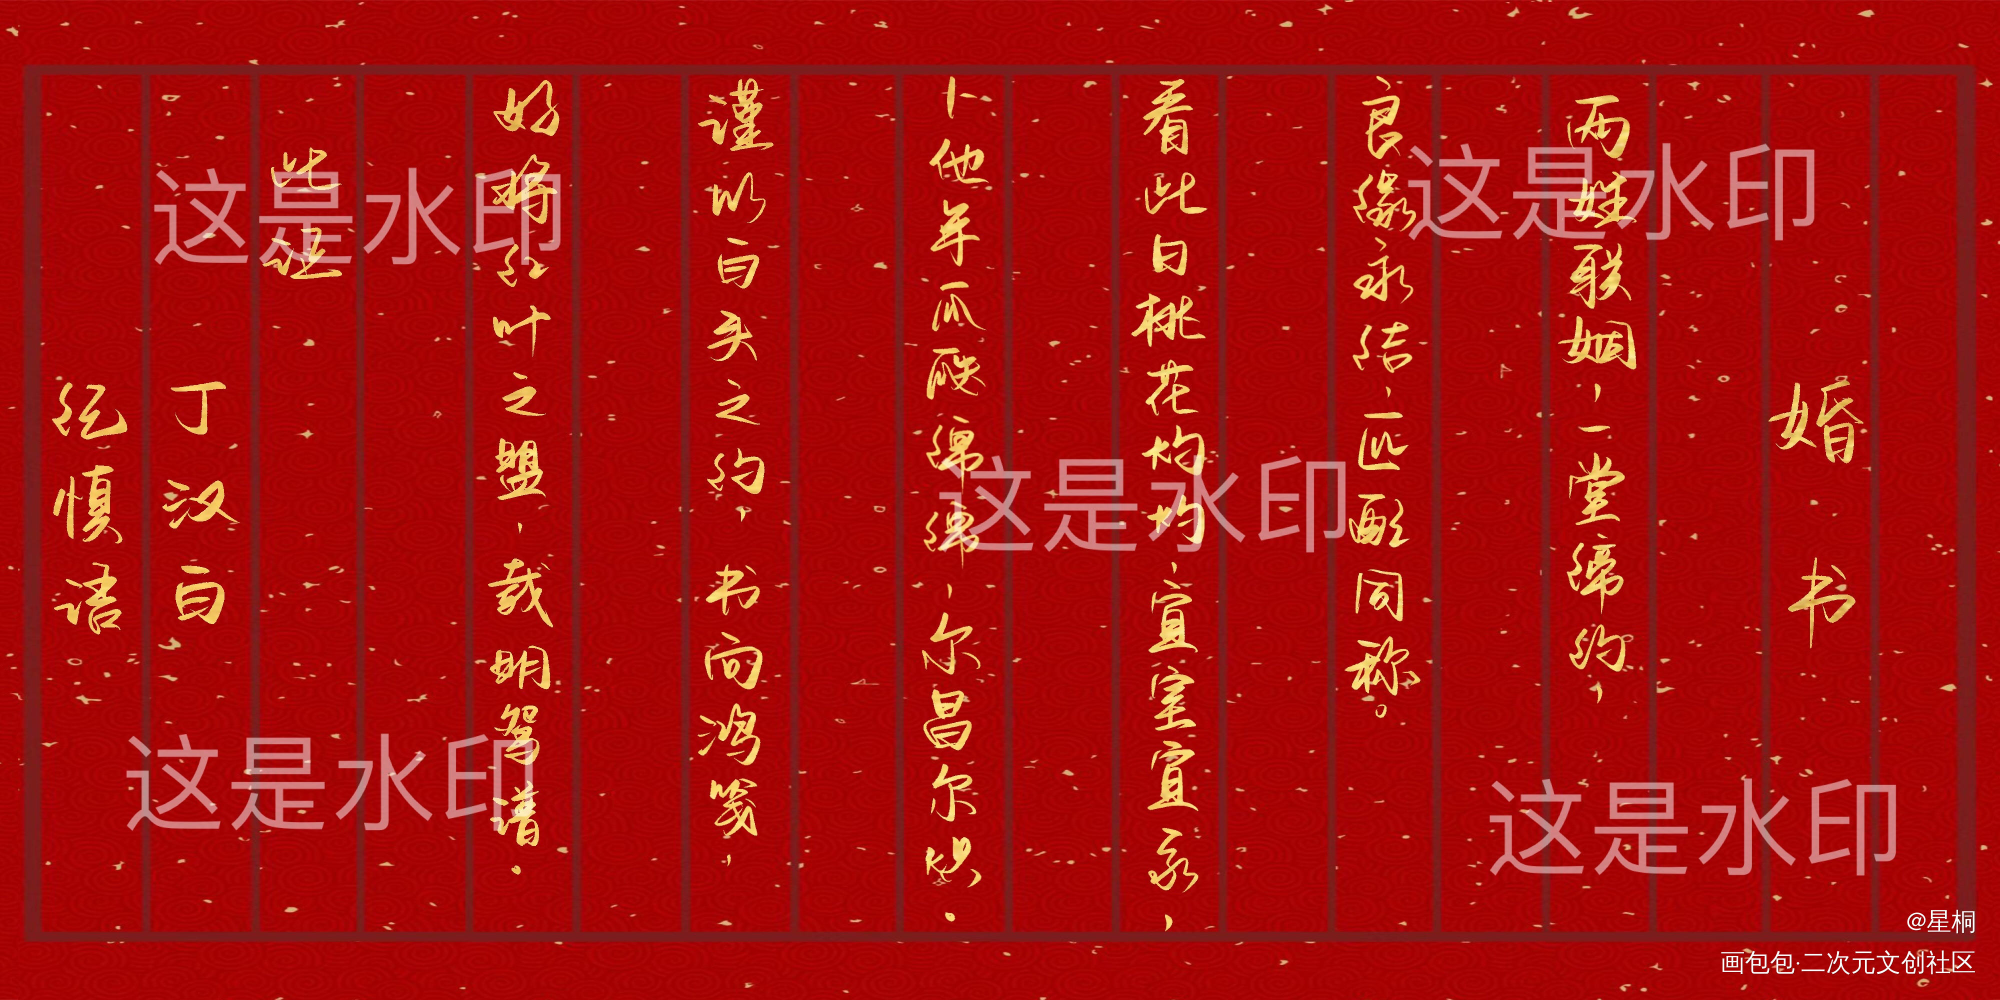 婚书
两姓联姻，一堂缔约，
良缘永结，匹配同称。
看此日桃花灼灼，宜室宜家，
卜他年瓜瓞绵绵，尔昌尔炽。
谨以白头之约，书向鸿笺，
好将红叶之盟，载明鸳谱。
此证
丁汉白
纪慎语
这是水印
这是水印
这是水印
这是水印
这是水印
@星桐
画包包·二次元文创社区